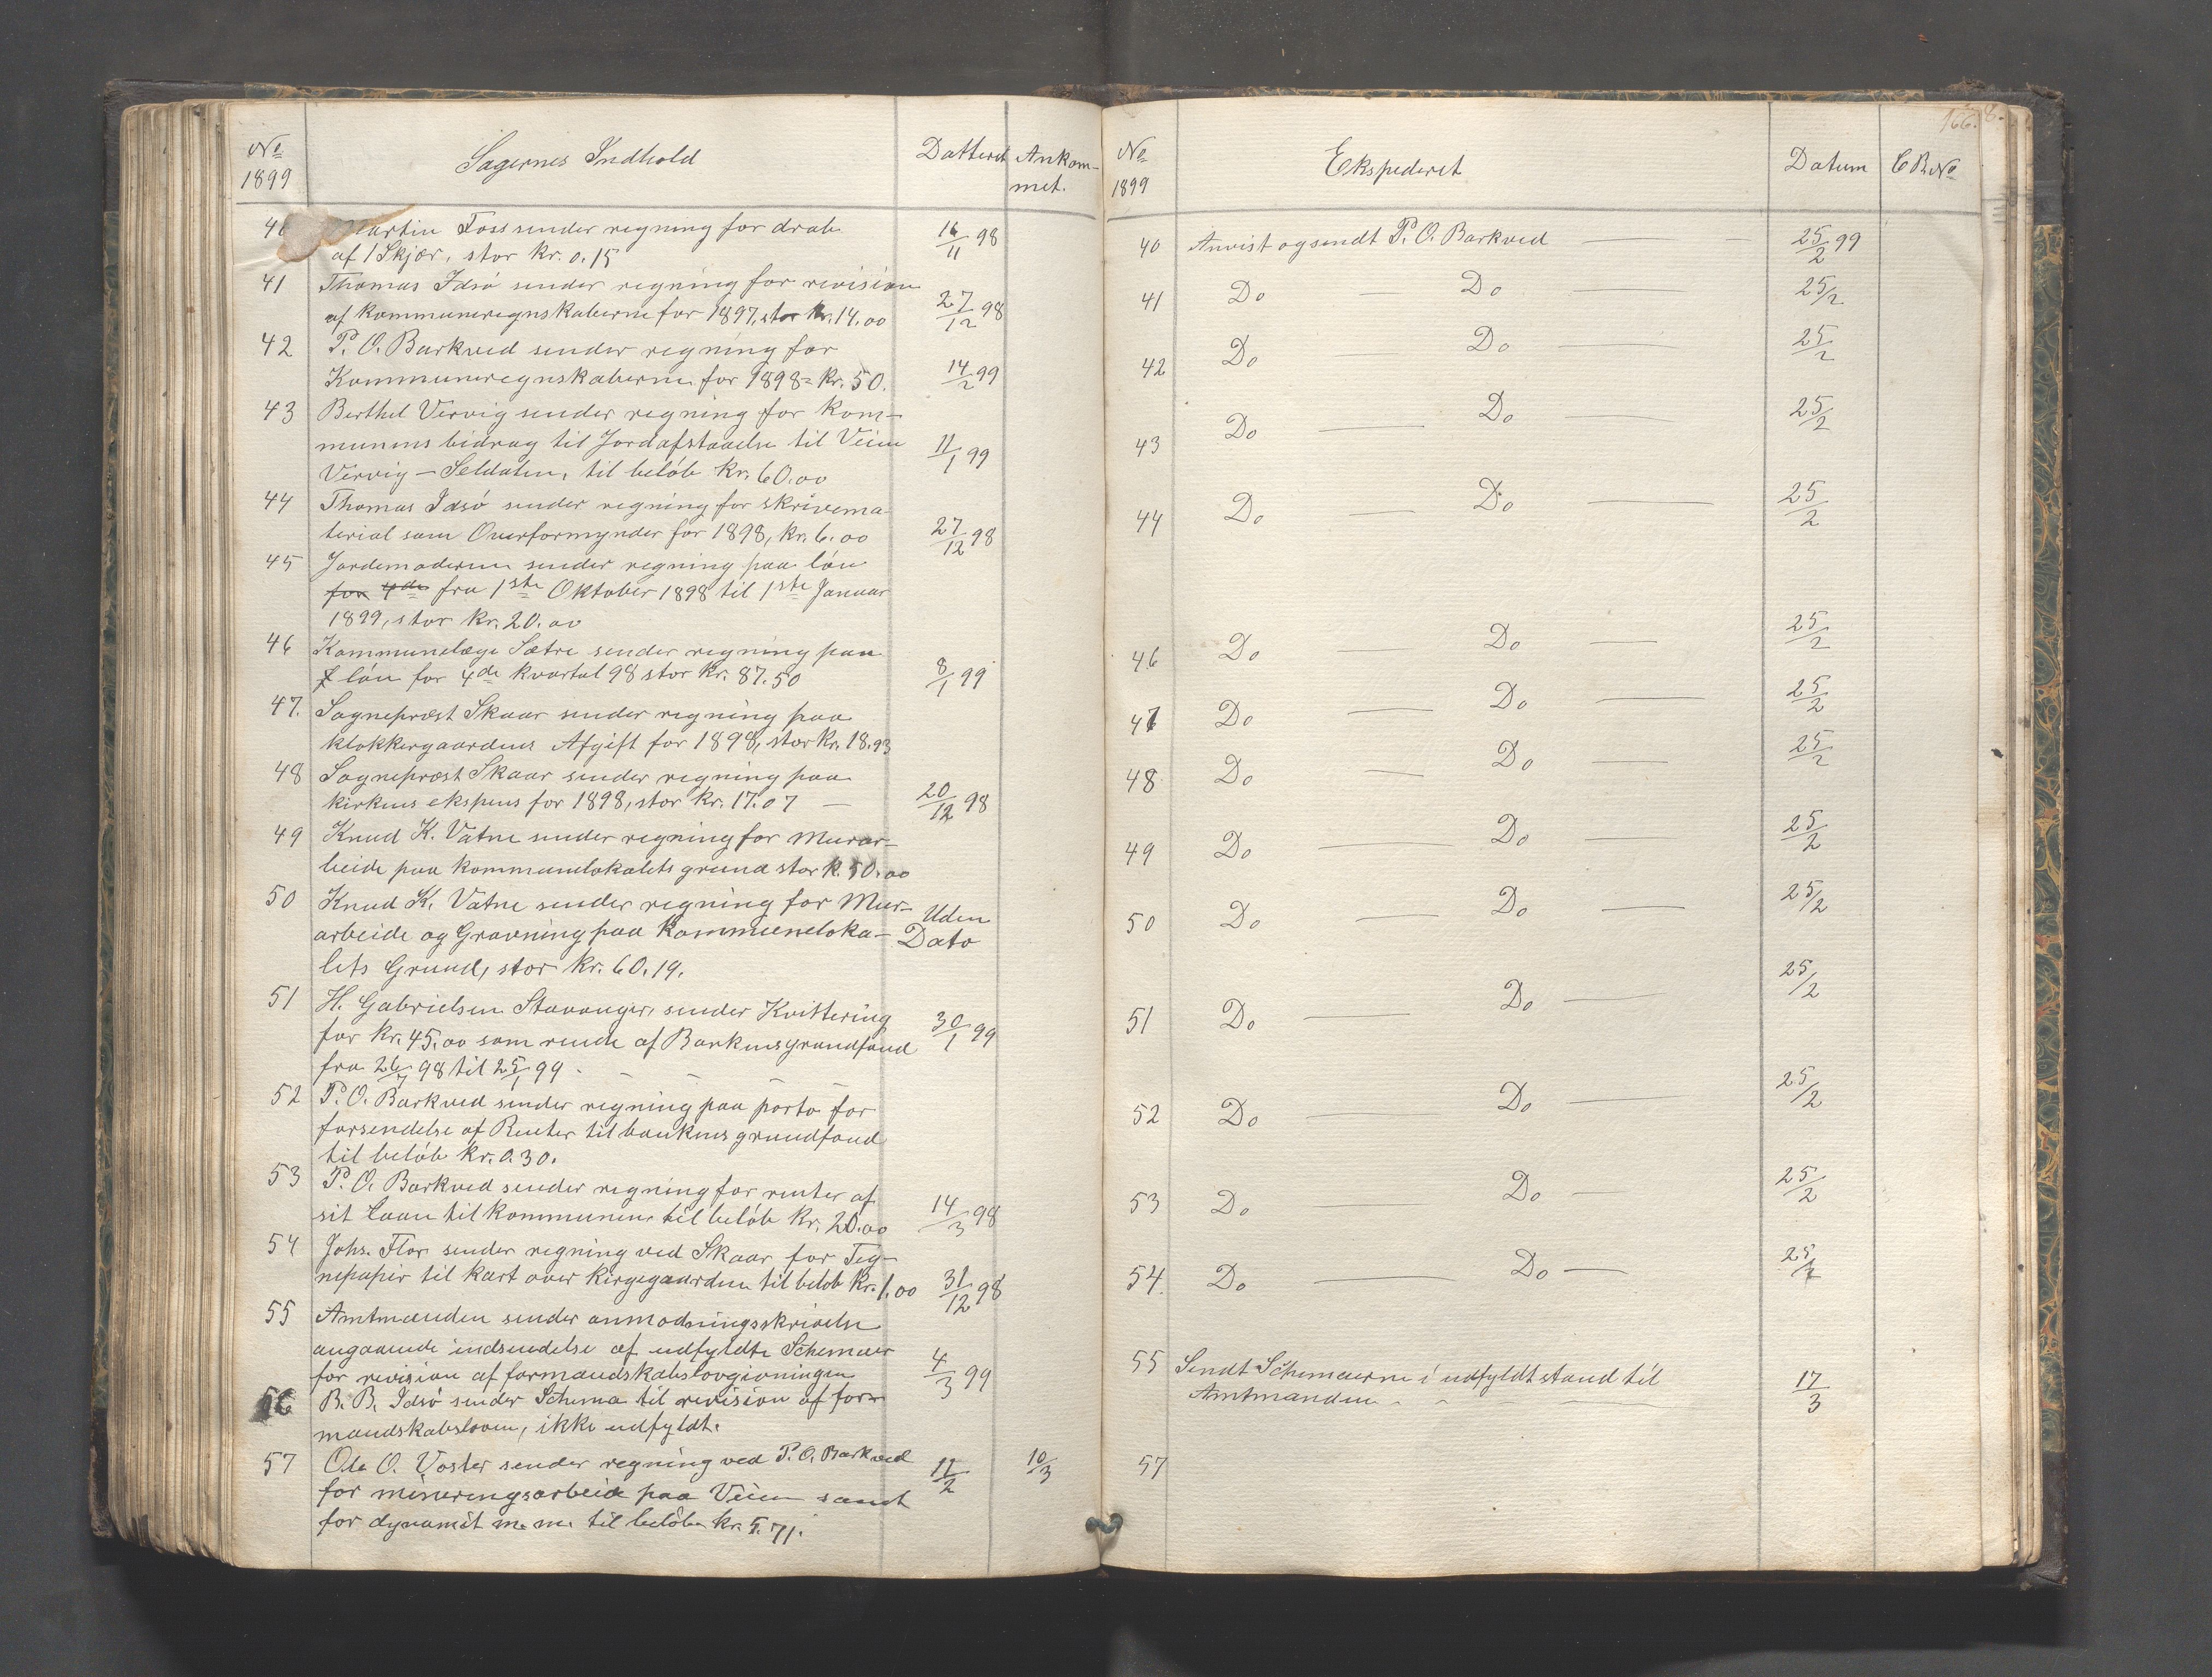 No 1899 Sagernes Indhold Datteret Ankom-
met.
40 Martin Foss sender regning for drab 16/11 98
af 1 Skjær, stor kr. 0.15
41 Thomas Idsø sender regning for revision
af kommuneregnskaberne for 1897, stor kr. 14.00 27/12 98
42 P. O. Barkved sender regning for
Kommuneregnskaberne for 1898 = kr. 50. 14/2 99
43 Berthel Vervig sender regning for kom-
munens bidrag til Jordafstaaelse til Veien 11/1 99
Vervig – Seldalen, til beløb kr. 60.00
44 Thomas Idsø sender regning for skrivema
terial som Overformynder for 1898, kr. 6.00 27/12 98
45 Jordemoderen sender regning paa løn
for 4de fra 1ste Oktober 1898 til 1ste Januar
1899, stor kr. 20.00
46 Kommunelæge Sætre sender regning paa
løn for 4de kvartal 98 stor kr. 87.50 8/1 99
47. Sognepræst Skaar sender regning paa
klokkergaardens Afgift for 1898, stor kr. 18.93
48 Sognepræst Skaar sender regning paa
kirkens ekspens for 1898, stor kr. 17.07 — 20/12 98
49 Knud K. Vatne sender regning for Murar-
beide paa kommunelokalets grund stor k. 50.00
50 Knud K. Vatne sender regning for Mur- Uden
arbeide og Gravning paa Kommuneloka- Dato
lets Grund, stor kr. 60.19.
51 H. Gabrielsen Stavanger, sender Kvittering
for kr. 45.00 som rente af Bankens grundfond 30/1 99
fra 26/7 98 til 25/1 99 -
52 P. O. Barkved sender regning paa porto for
forsendelse af Renter til bankens grundfond
til beløb kr. 0.30.
53 P. O. Barkved sender regning for renter af
sit laan til kommunen til beløb kr. 20.00 14/3 98
54 Johs. Flor sender regning ved Skaar for Teg-
nepapir til kart over kirgegaarden til beløb kr. 1.00 31/12 98
55 Amtmanden sender anmodningsskrivelse
angaaende indsendelse af udfyldte Schemaer 4/3 99
for revision af formandskabslovgivningen
56 B. B. Idsø sender Schema til revision af for-
mandskabsloven, ikke udfyldt.
57 Ole O. Voster sender regning ved P. O. Barkved 11/2 10/3
for mineringsarbeide paa Veien samt
for dynamit m. m. til beløb kr. 5.71.
166. 8.
No 1899 Ekspederet Datum C B. No
40 Anvist og sendt P. O. Barkved — 25/2 99
41 Do — Do — 25/2
42 Do — Do — 25/2
43 Do — Do — 25/2
44 Do — Do — 25/2
46 Do — Do — 25/2
47 Do — Do — 25/2
48 Do — Do — 25/2
49 Do — Do — 25/2
50 Do — Do — 25/2
51 Do — Do — 25/2
52 Do — Do — 25/2
53 Do — Do — 25/2
54. Do — Do — 25/2
55 Sendt Schemaerne i udfyldt stand til
Amtmanden - - — 17/3
57